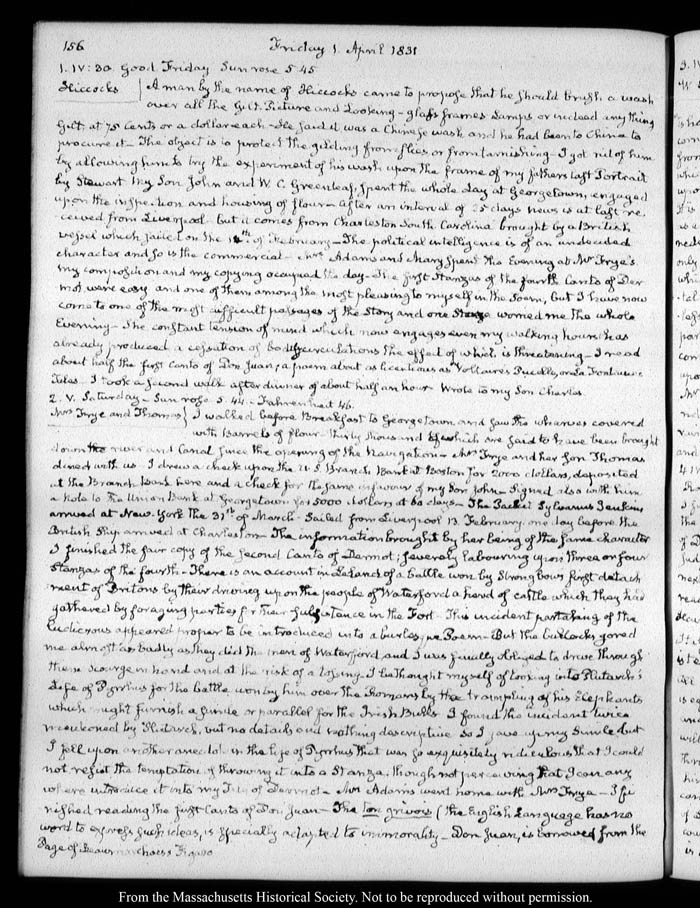 156 Friday 1. April 1831
1. IV:30. Good Friday Sun rose 5.45
Hiccocks } A man by the name of Hiccocks came to propose that he should brush a wash
over all the Gilt Picture and Looking-glass frames Lamps or indeed any thing
Gilt, at 75 Cents or a dollar each - He said it was a Chinese wash, and he had been to China to
procure it - The object is to protect the gilding from flies or from tarnishing - I got rid of him
by allowing him to try the experiment of his wash upon the frame of my father's last Portrait
by Stewart My Son John and W. C. Greenleaf, spent the whole day at Georgetown, engaged
upon the inspection and housing of flour - After an interval of 25 days news is at last re-
ceived from Liverpool - but it comes from Charleston South Carolina brought by a British
vessel which sailed on the 14th. of February - The political intelligence is of an undecided
character and so is the commercial - Mrs Adams and Mary spent the Evening at Mr Frye's.
my composition and my copying occupied the day - The first Stanzas of the fourth Canto of Der
mot, were easy and one of them among the most pleasing to myself in the Poem, but I have now
come to one of the most difficult passages of the Story and one Stanza worried me the whole
Evening - The constant tension of mind which now engages even my walking hours has
already produced a cessation of bodily circulations the effect of which is threatening - I read
about half the first Canto of Don Juan; a poem about as licentious as Voltaire's Pucelle, or La Fontaine's
Tales - I took a second walk after dinner of about half an hour Wrote to my Son Charles.
2. V. Saturday - Sun rose 5.44 - Fahrenheit 46.
Mrs Frye and Thomas } I walked before Breakfast to Georgetown and saw the wharves covered
with Barrels of flour - thirty thousand of which are said to have been brought
down the river and Canal since the opening of the Navigation - Mrs Frye and her Son Thomas
dined with us. I drew a check upon the U.S. Branch Bank at Boston for 2000 dollars, deposited
at the Branch Bank here and a check for the same in favour of my Son John - Signed also with him
a Note to the Union Bank at Georgetown for 5000 dollars at 60 days - The Packet Sylvanus Jenkins
arrived at New-York the 31st of March - Sailed from Liverpool 13. February, one day before the
British Ship arrived at Charleston - The information brought by her being of the same character
I finished the fair copy of the second Canto of Dermot; severely labouring upon three or four
Stanzas of the fourth - There is an account in Leland of a battle won by Strongbow's first detach
ment of Britons by their driving upon the people of Waterford a herd of cattle which they had
gathered by foraging parties for their subsistence in the Fort - This incident partaking of the
Ludicrous appeared proper to be introduced into a burlesque Poem - But the bullocks gored
me almost as badly as they did the men of Waterford, and I was finally obliged to drive through
them scourge in hand and at the risk of a tossing. I bethought myself of looking into Plutarch's
Life of Pyrrhus for the battle won by him over the Romans by the trampling of his Elephants
which might furnish a simile or parallel for the Irish Bulls. I found the incident twice
mentioned by Plutarch, but no details and nothing descriptive so I gave up my Simile, but
I fell upon another anecdote in the life of Pyrrhus that was so exquisitely ridiculous that I could
not resist the temptation of throwing it into a Stanza, though not perceiving that I can any
where introduce it into my Tale of Dermot - Mrs Adams went home with Mrs Frye - I fi
nished reading the first Canto of Don Juan - The ton grivois (the English Language has no
word to express such ideas, is specially adapted to immorality - Don Juan, is borrowed from the
Page of Beaumarchais's Figaro
From the Massachusetts Historical Society. Not to be reproduced without permission.